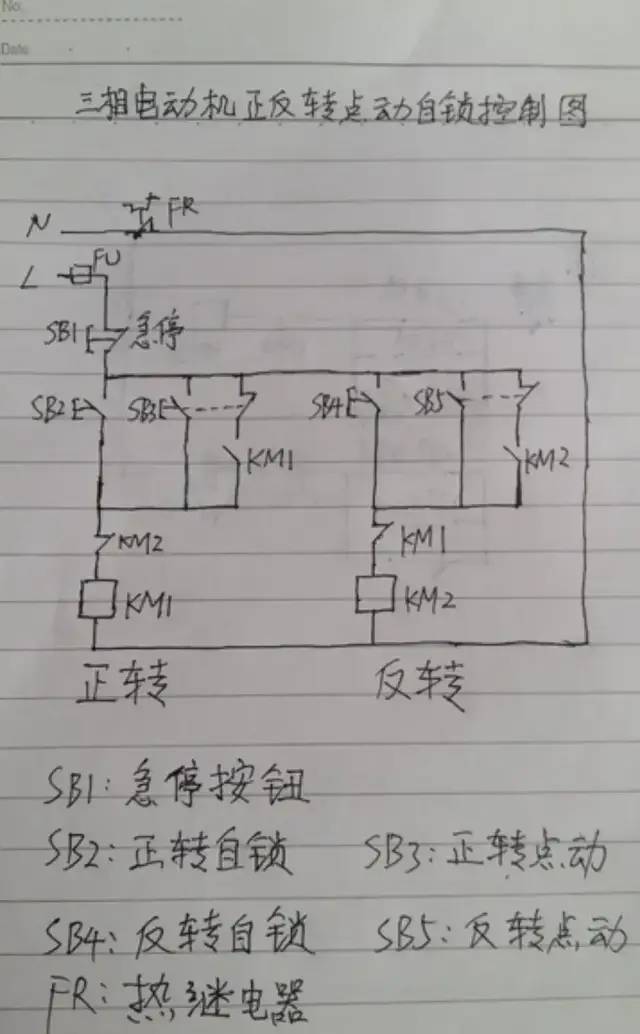 No.
Date
三相电动机正反转点动自锁控制图
N FR
L FU
SB1 急停
SB2 SB3 SB4 SB5
KM1 KM2
KM2 KM1
KM1 KM2
正转 反转
SB1: 急停按钮
SB2: 正转自锁 SB3: 正转点动
SB4: 反转自锁 SB5: 反转点动
FR: 热继电器